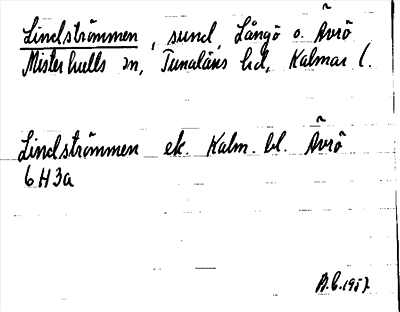 Lindströmmen, sund, Långö o. Ävrö
Misterhults sn, Tunaläns hd, Kalmar l.
Lindströmmen ek. Kalm. bl. Ävrö
6H3a
B.C. 1957